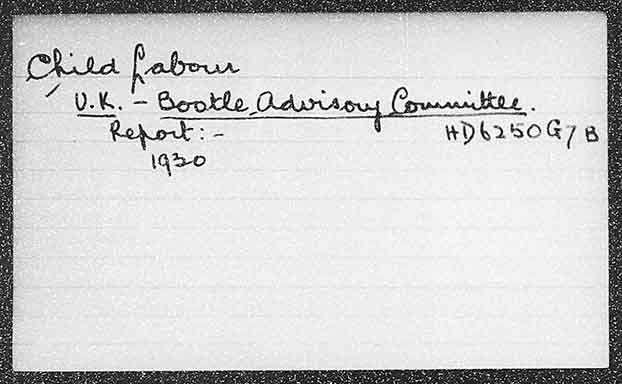 Child Labour
U.K. - Bootle Advisory Committee.
Report:- HD6250G7B
1930